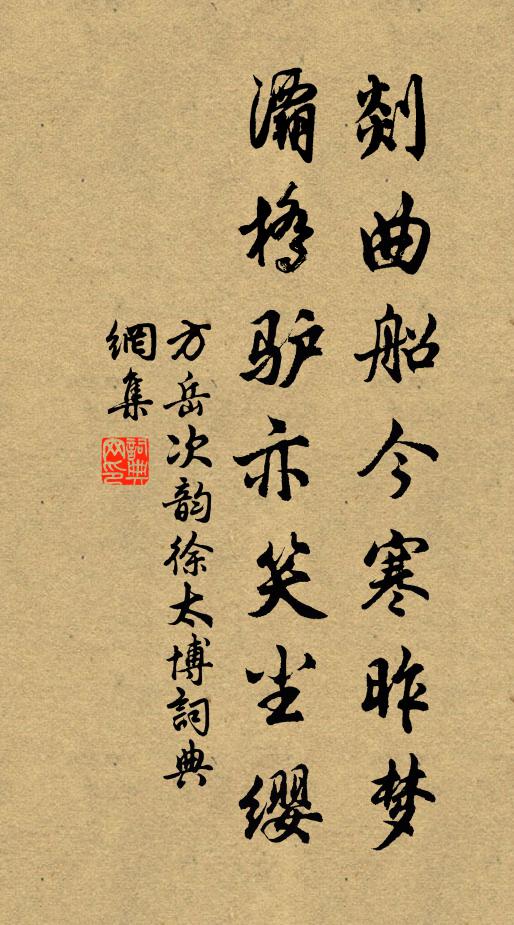 剡曲船今寒昨梦
灞桥驴亦笑尘缨
方岳次韵徐太博詞典
網集
詞典网印